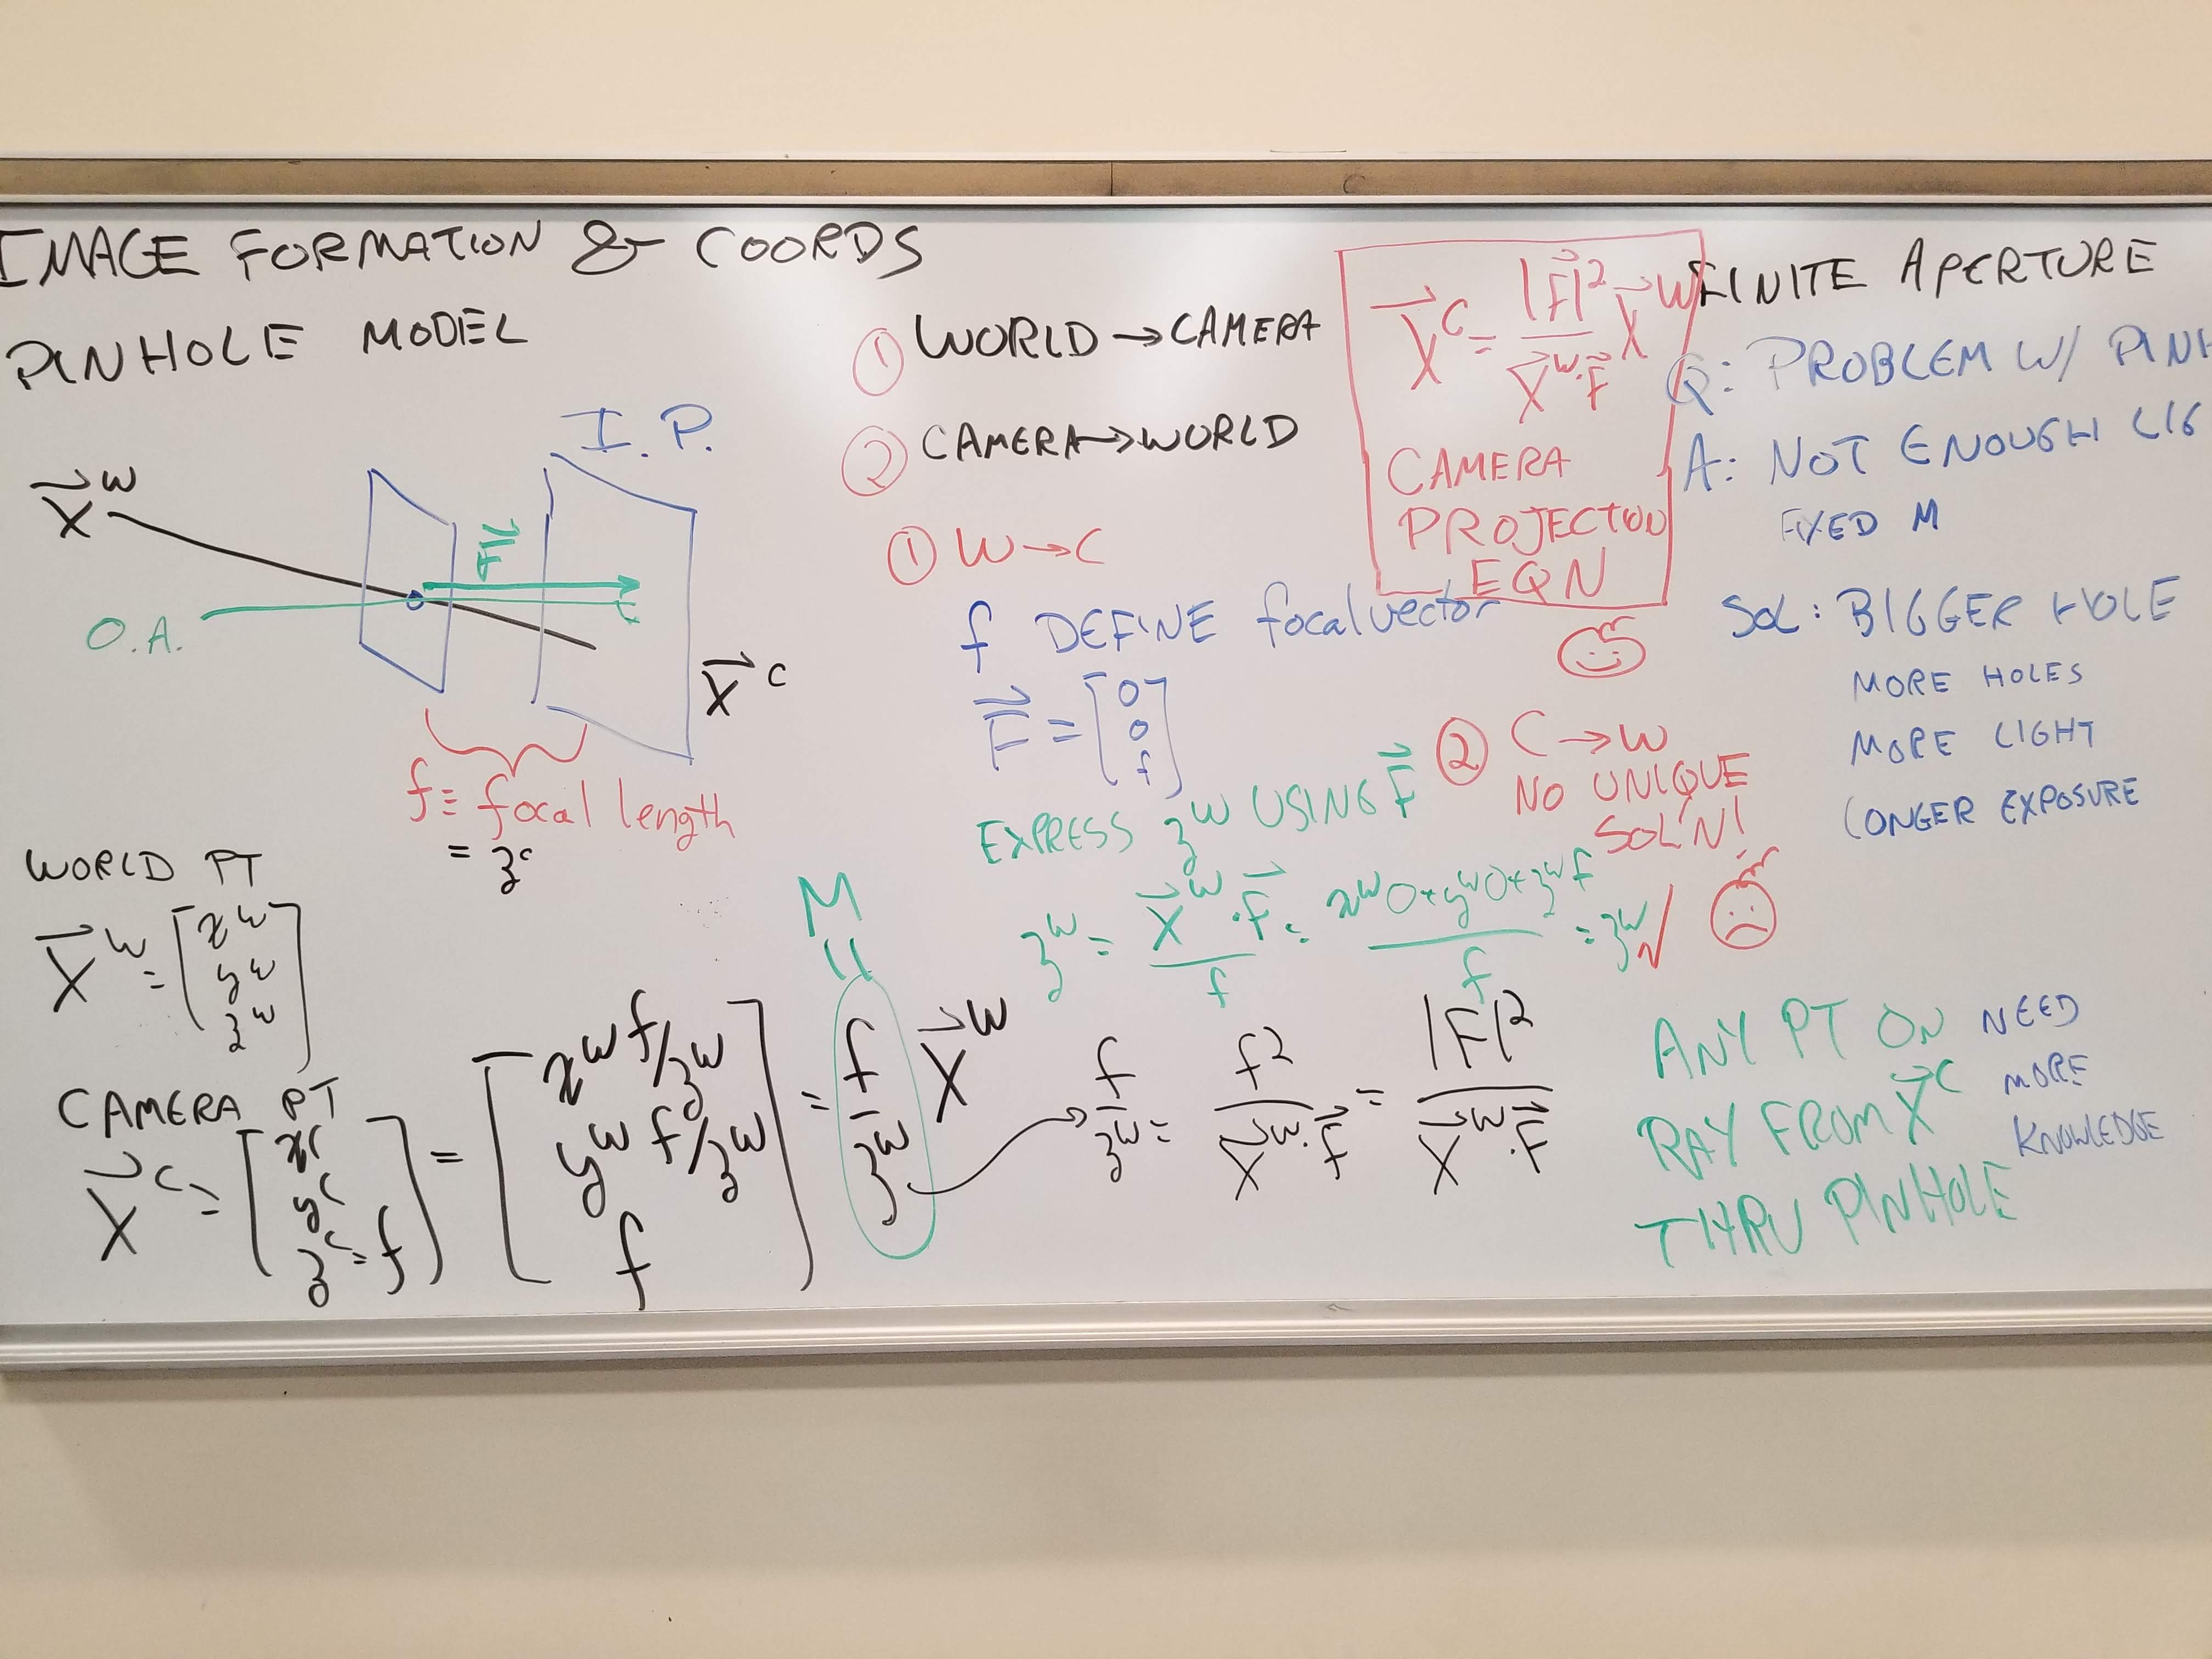 IMAGE FORMATION & COORDS
PINHOLE MODEL
I. P.
X⃗^w
F⃗
O.A.
X⃗^c
f ≡ focal length
= z^c
WORLD PT
X⃗^w = [x^w
y^w
z^w]
CAMERA PT
X⃗^c = [x^c
y^c
z^c = f] = [x^w f/z^w
y^w f/z^w
f] = f/z^w X⃗^w
M
||
① WORLD → CAMERA
② CAMERA → WORLD
① W → C
f DEFINE focal vector
F⃗ = [0
0
f]
EXPRESS z^w USING F⃗
z^w = X⃗^w · F⃗ / f = x^w 0 + y^w 0 + z^w f / f = z^w ✓
f/z^w = f² / X⃗^w · F⃗ = |F|² / X⃗^w · F⃗
X⃗^c = |F⃗|² / X⃗^w · F⃗ X⃗^w
CAMERA
PROJECTION
EQN
② C → W
NO UNIQUE
SOL'N!
ANY PT ON
RAY FROM X⃗^c
THRU PINHOLE
NEED
MORE
KNOWLEDGE
FINITE APERTURE
Q: PROBLEM W/ PINH
A: NOT ENOUGH LIG
FIXED M
SOL: BIGGER HOLE
MORE HOLES
MORE LIGHT
LONGER EXPOSURE